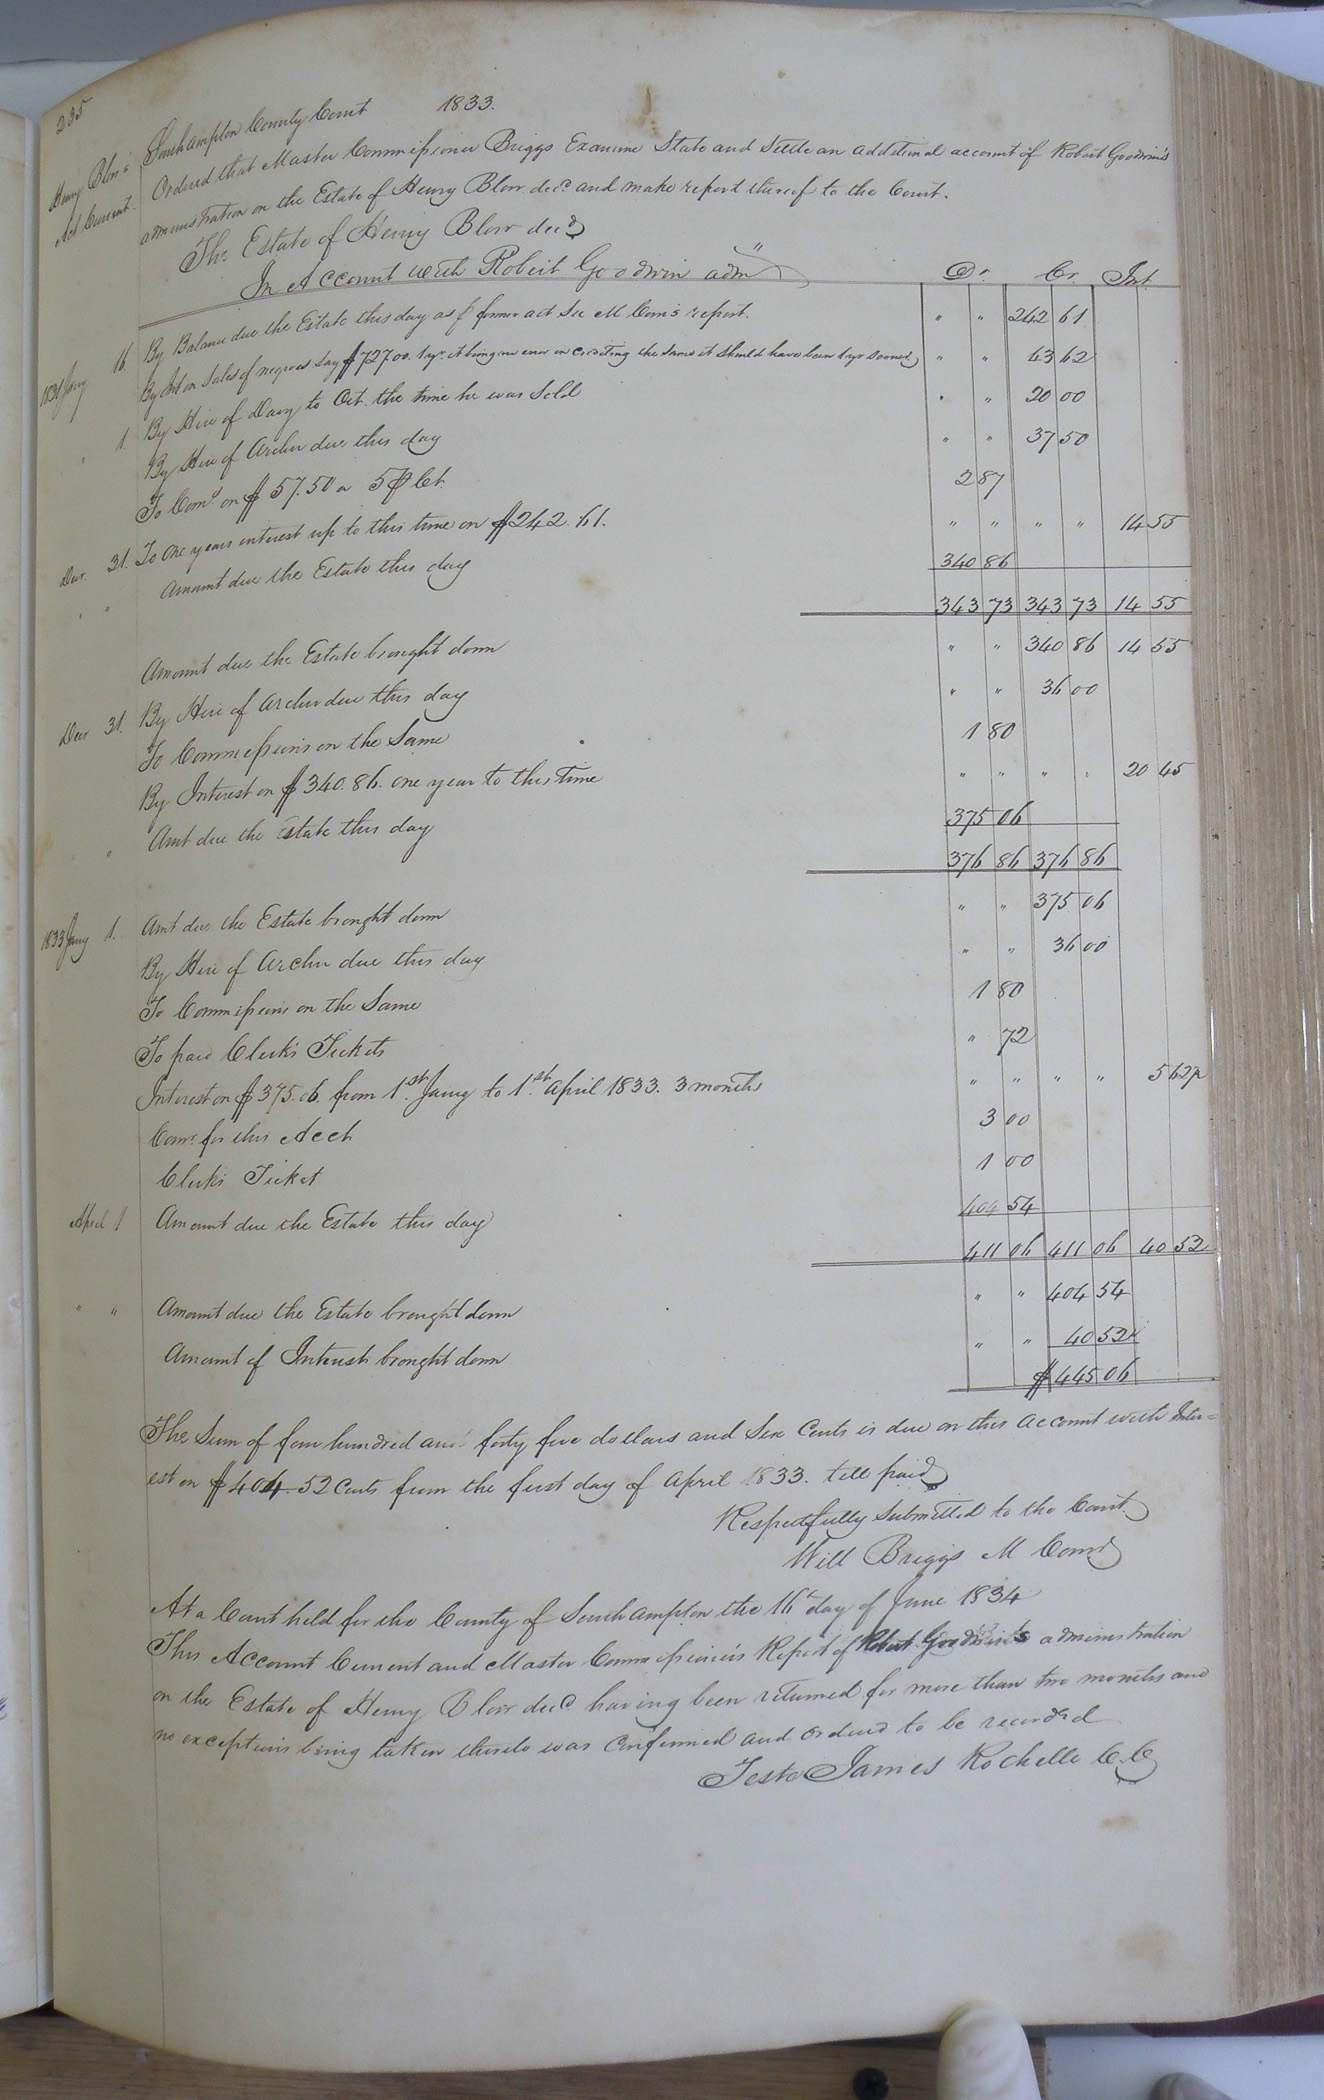 235
Southampton County Court 1833.
Henry Blow's
Act Current.
Ordered that Master Commissioner Briggs Examine State and Settle an additional account of Robert Goodwin's
administration on the Estate of Henry Blow decd and make report thereof to the Court.
The Estate of Henry Blow decd
In Account with Robert Goodwin adm Dr. Cr. Int.
1831 Jany 16. By Balance due the Estate this day as p former act See M Com's report. " " 242 61
By Int on Sales of negroes say $727.00. 1 yr. it being an error in crediting the same it should have been 1 yr sooner " " 43 62
" 1. By Hire of Davy to Oct. the time he was Sold " " 20 00
By Hire of Archer due this day " " 37 50
To Coms on $57.50 a 5 p Ct. 2 87
Decr. 31. To one years interest up to this time on $242.61. " " " " 14 55
" Amount due the Estate this day 340 86
343 73 343 73 14 55
Amount due the Estate brought down " " 340 86 14 55
Decr 31. By Hire of Archer due this day " " 36 00
To Commissions on the Same 1 80
By Interest on $340.86. one year to this time " " " " 20 45
" Amt due the Estate this day 375 06
376 86 376 86
1833 Jany 1. Amt due the Estate brought down " " 375 06
By Hire of Archer due this day " " 36 00
To Commissions on the Same 1 80
To paid Clerk's Tickets " 72
Interest on $375.06. from 1st Jany to 1st April 1833. 3 months " " " " 5 62½
Coms for this Acct 3 00
Clerks Ticket 1 00
April 1 Amount due the Estate this day 404 54
411 06 411 06 40 52
" " Amount due the Estate brought down " " 404 54
Amount of Interest brought down " " 40 52½
$445 06
The Sum of four hundred and forty five dollars and Six Cents is due on this account with Inter=
est on $404.52 Cents from the first day of April 1833. till paid
Respectfully Submitted to the Court.
Will Briggs M Comr
At a Court held for the County of Southampton the 16th day of June 1834
This Account Current and Master Commissioner's Report of Robert Goodwin's administration
on the Estate of Henry Blow decd having been returned for more than two months and
no exceptions being taken thereto was Confirmed and ordered to be recorded
Teste James Rochelle C.C